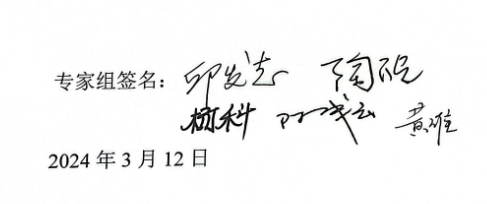 专家组签名：邱发志 陶砚
杨科 陈成云 黄维
2024 年 3 月 12 日